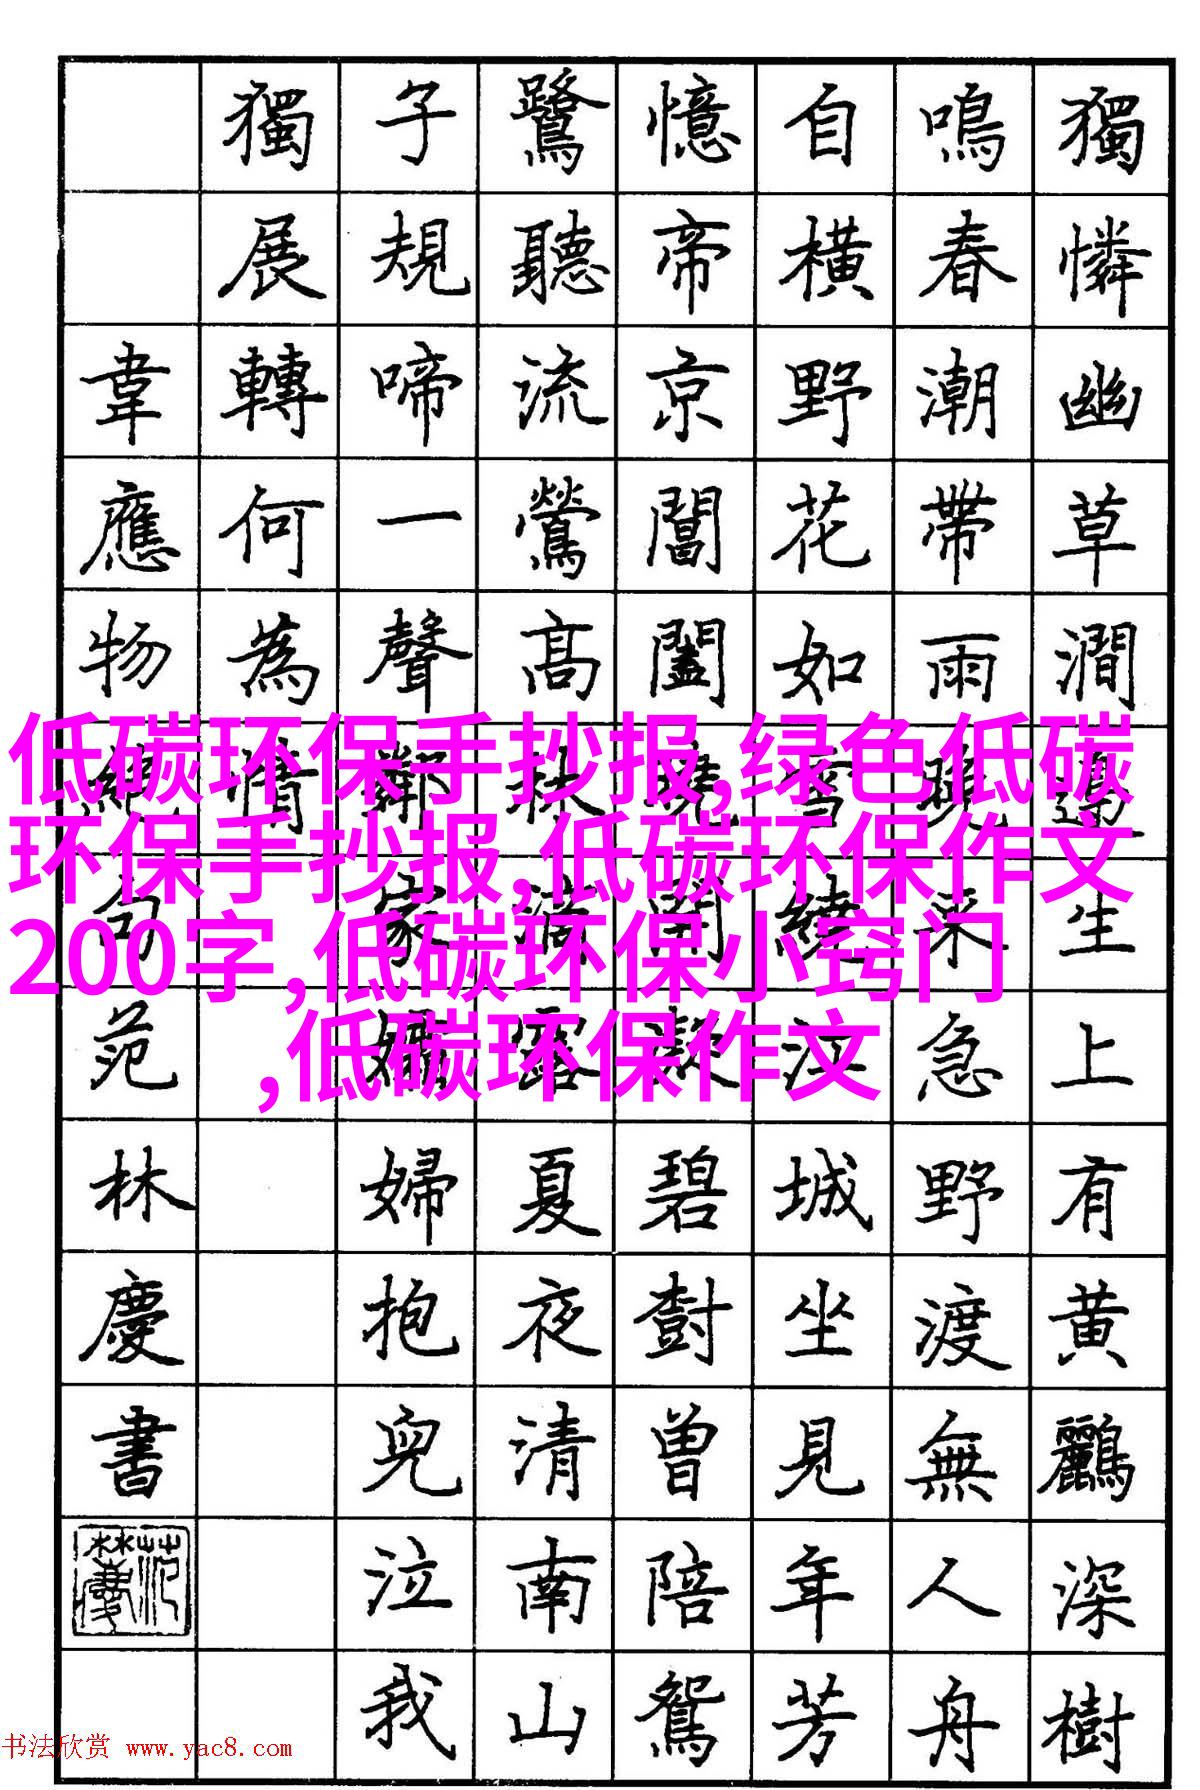 獨憐幽草澗邊生上有黄鸝深樹
鳴春潮帶雨晚来急野渡無人舟
自横野花如雪繞江城坐見年芳
憶帝京閶闔曉開凝碧樹曾陪鴛
鷺聽流鶯高林滴露夏夜清南山
子規啼一聲鄰家孀婦抱兒泣我
獨展轉何為情
韋應物絶句范林慶書
低碳环保手抄报,绿色低碳
环保手抄报,低碳环保作文
200字,低碳环保小窍门
,低碳环保作文
书法欣赏 www.yac8.com